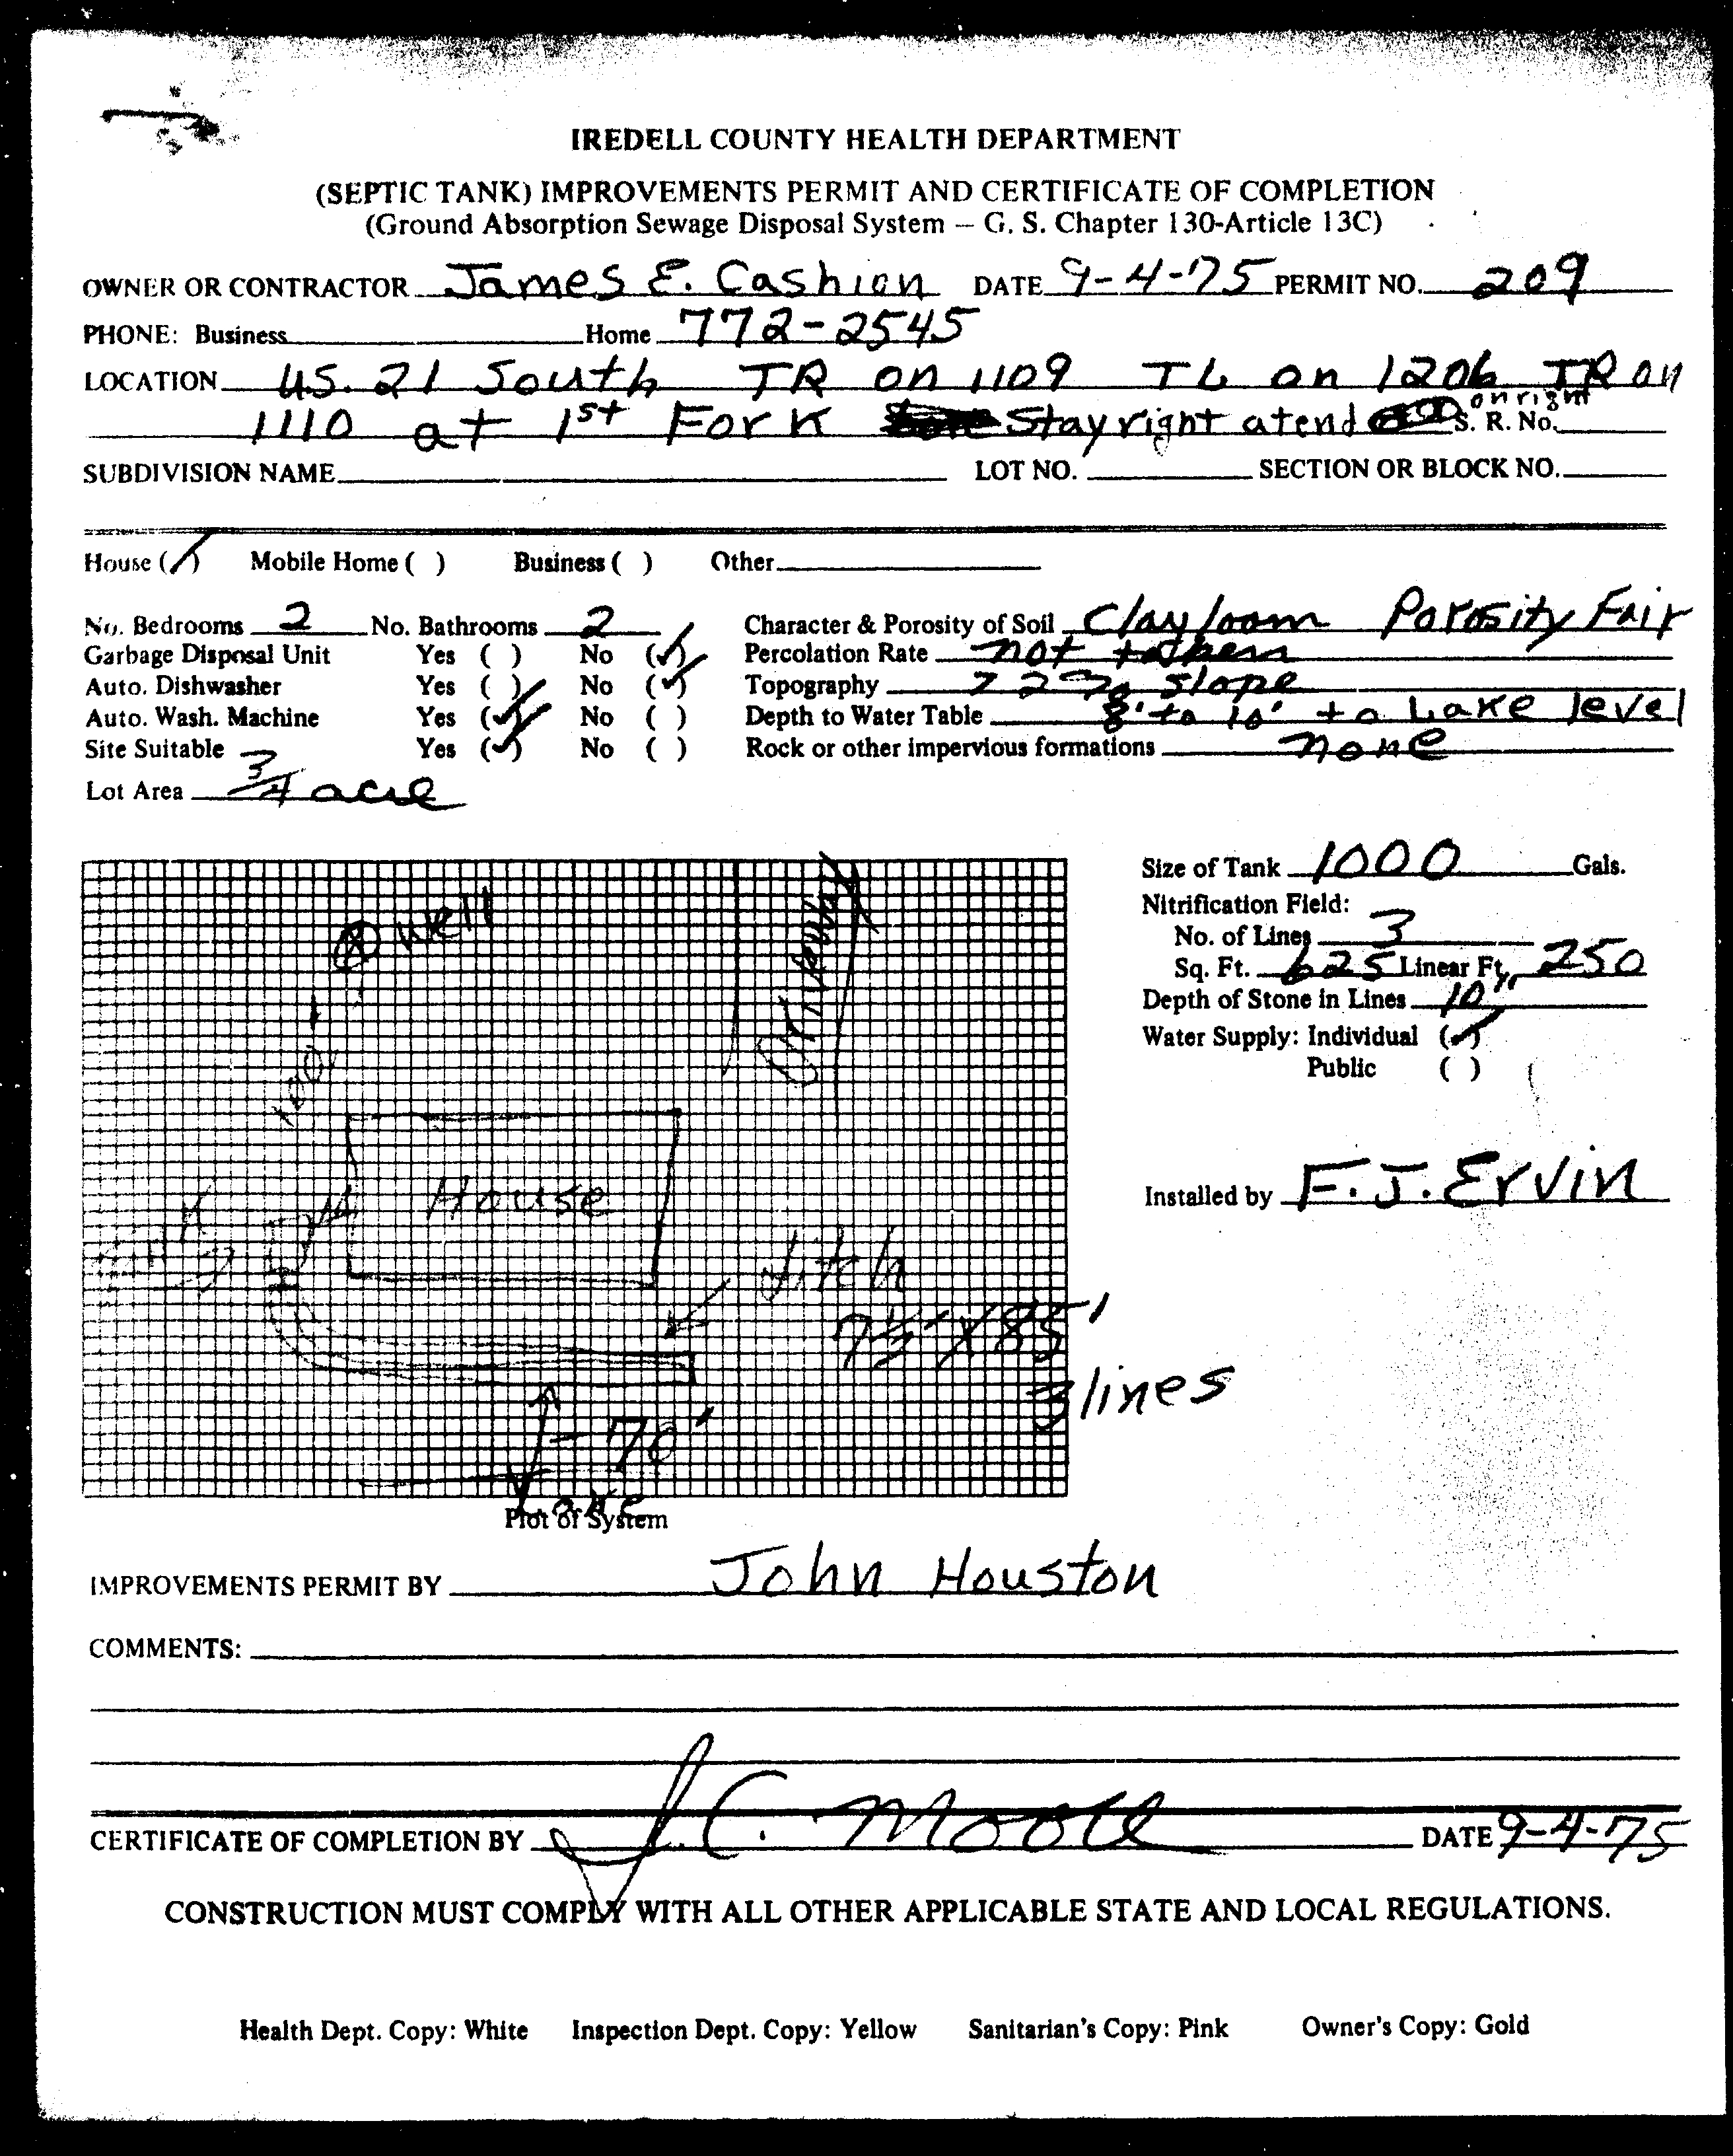 IREDELL COUNTY HEALTH DEPARTMENT
(SEPTIC TANK) IMPROVEMENTS PERMIT AND CERTIFICATE OF COMPLETION
(Ground Absorption Sewage Disposal System — G. S. Chapter 130-Article 13C)
OWNER OR CONTRACTOR James E. Cashion DATE 9-4-75 PERMIT NO. 209
PHONE: Business Home 772-2545
LOCATION U.S. 21 South TR on 1109 TL on 1206 TR on
1110 at 1st Fork Stay right at end on right S. R. No.
SUBDIVISION NAME LOT NO. SECTION OR BLOCK NO.
House (✓) Mobile Home ( ) Business ( ) Other
No. Bedrooms 2 No. Bathrooms 2 Character & Porosity of Soil Clay loam Porosity Fair
Garbage Disposal Unit Yes ( ) No (✓) Percolation Rate not taken
Auto. Dishwasher Yes ( ) No (✓) Topography 22% slope
Auto. Wash. Machine Yes (✓) No ( ) Depth to Water Table 8' to 10' to Lake level
Site Suitable Yes (✓) No ( ) Rock or other impervious formations none
Lot Area 3/4 acre
Size of Tank 1000 Gals.
Nitrification Field:
No. of Lines 3
Sq. Ft. 625 Linear Ft. 250
Depth of Stone in Lines 10"
Water Supply: Individual (✓)
Public ( )
Installed by F. J. Ervin
well
Driveway
100'
House
ditch
7½' X 85'
3 lines
70'
Lake
Plot of System
IMPROVEMENTS PERMIT BY John Houston
COMMENTS:
CERTIFICATE OF COMPLETION BY J. C. Moore DATE 9-4-75
CONSTRUCTION MUST COMPLY WITH ALL OTHER APPLICABLE STATE AND LOCAL REGULATIONS.
Health Dept. Copy: White Inspection Dept. Copy: Yellow Sanitarian's Copy: Pink Owner's Copy: Gold